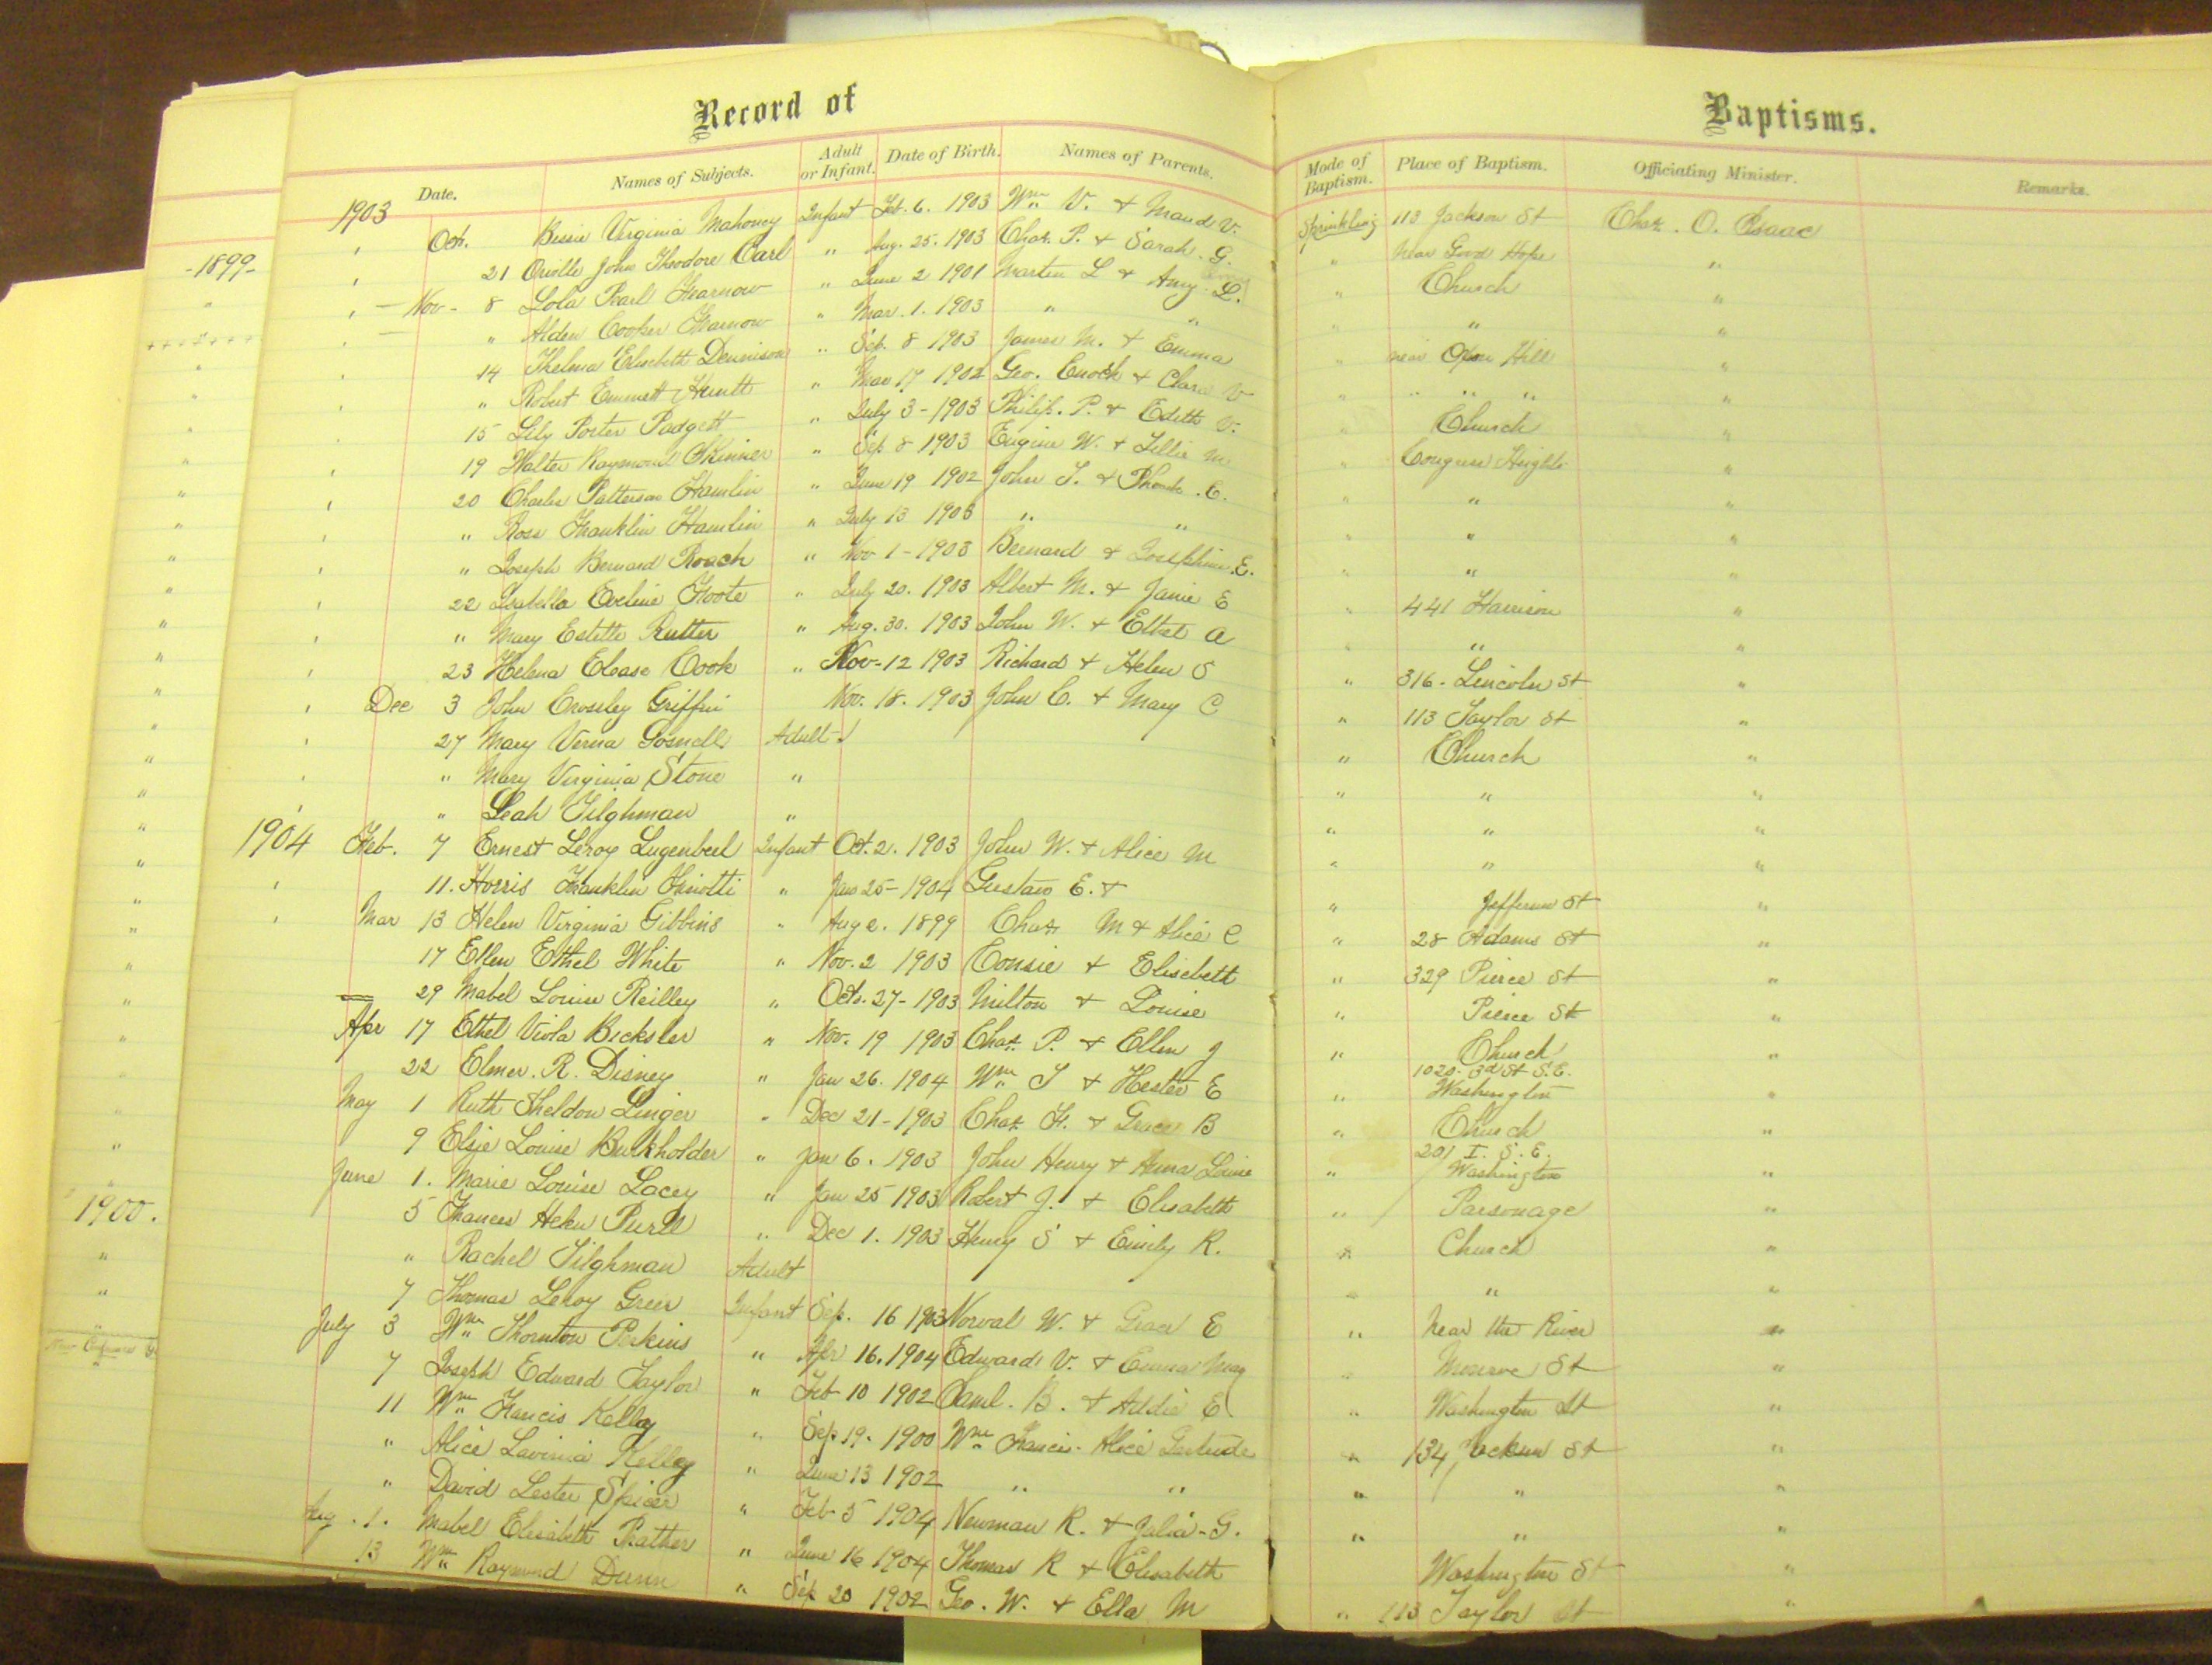 Record of Baptisms.
Date. Names of Subjects. Adult or Infant. Date of Birth. Names of Parents. Mode of Baptism. Place of Baptism. Officiating Minister. Remarks.
1903 Oct. Bessie Virginia Mahoney Infant Feb. 6. 1903 Wm V. & Maud V. Sprinkling 113 Jackson St Chas. O. Isaac
21 Oriolle John Theodore Carl " Aug. 25. 1903 Chas. P. & Sarah. G. " Near Good Hope "
Nov- 8 Lola Pearl Fearnow " June 2 1901 Marten L & Amy L. " Church "
" Alden Cooper Fearnow " Mar. 1. 1903 " " " " "
14 Thelma Elisebeth Dennison " Sep. 8 1903 James M. & Emma " near Oxon Hill "
" Robert Emmett Huntt " Mar 17 1902 Geo. Enoch & Clara V " " " " "
15 Lily Porter Padgett " July 3-1903 Philip. P. & Edith V. " Church "
19 Walter Raymond Skinner " Sep 8 1903 Eugine W. & Lillie M " Congress Heights "
20 Charles Patterson Hamlin " June 19 1902 John T. & Phoeb. E. " " "
" Ross Franklin Hamlin " July 13 1903 " " " " "
" Joseph Bernard Roach " Nov 1-1903 Bernard & Josephine. E. " " "
22 Isabella Eveline Foote " July 20. 1903 Albert M. & Janie E " 441 Harrison "
" Mary Estelle Rutter " Aug. 30. 1903 John W. & Ethel A " " "
23 Helena Elease Cook " Nov-12 1903 Richard & Helen S " 316. Lincoln St "
Dec 3 John Crossley Griffin Nov. 18. 1903 John C. & Mary C " 113 Taylor St "
27 Mary Verna Gosnell Adult " Church "
" Mary Virginia Stone " " " "
" Leah Tilghman " " " "
1904 Feb. 7 Ernest Leroy Lugenbeel Infant Oct. 2. 1903 John W. & Alice M " " "
11. Horris Franklin " Jan 25-1904 Gustav E. & " Jefferson St "
Mar 13 Helen Virginia Gibbins " Aug 2. 1899 Chas M & Alice C " 28 Adams St "
17 Ellen Ethel White " Nov. 2 1903 Consie & Elisebeth " 329 Pierce St "
29 Mabel Louise Reilley " Oct. 27-1903 Milton & Louise " Pierce St "
Apr 17 Ethel Viola Bicksler " Nov. 19 1903 Chas. P. & Ellen J " Church "
22 Elmer. R. Disney " Jan 26. 1904 Wm T & Hester E " 1020. 3d St S.E. Washington "
May 1 Ruth Sheldon Linger " Dec 21-1903 Chas H. & Grace B " Church "
9 Elsie Louise Burkholder " Jan 6. 1903 John Henry & Anna Louise " 201 I. S. E. Washington "
June 1. Marie Louise Lacey " Jan 25 1903 Robert J. & Elisabeth " Parsonage "
5 Frances Helen " Dec 1. 1903 Henry S & Emily R. " Church "
" Rachel Tilghman Adult " " "
7 Thomas Leroy Greer Infant Sep. 16 1903 Norval W. & Grace E " Near the River "
July 3 Wm Thornton Perkins " Apr 16. 1904 Edward V. & Emma May " Monroe St "
7 Joseph Edward Taylor " Feb 10 1902 Saml. B. & Addie E " Washington St "
11 Wm Francis Kelley " Sep. 19. 1900 Wm Francis. Alice Gertrude " 134 Jackson St "
" Alice Lavinia Kelley " June 13 1902 " " " " "
" David Lester Spicer " Feb 5 1904 Newman R. & Julia-G. " " "
Aug. 1. Mabel Elisabeth Prather " June 16 1904 Thomas R & Elisabeth Washington St "
13 Wm Raymond Dunn " Sep 20 1902 Geo. W. & Ella M " 113 Taylor St "
-1899-
1900.